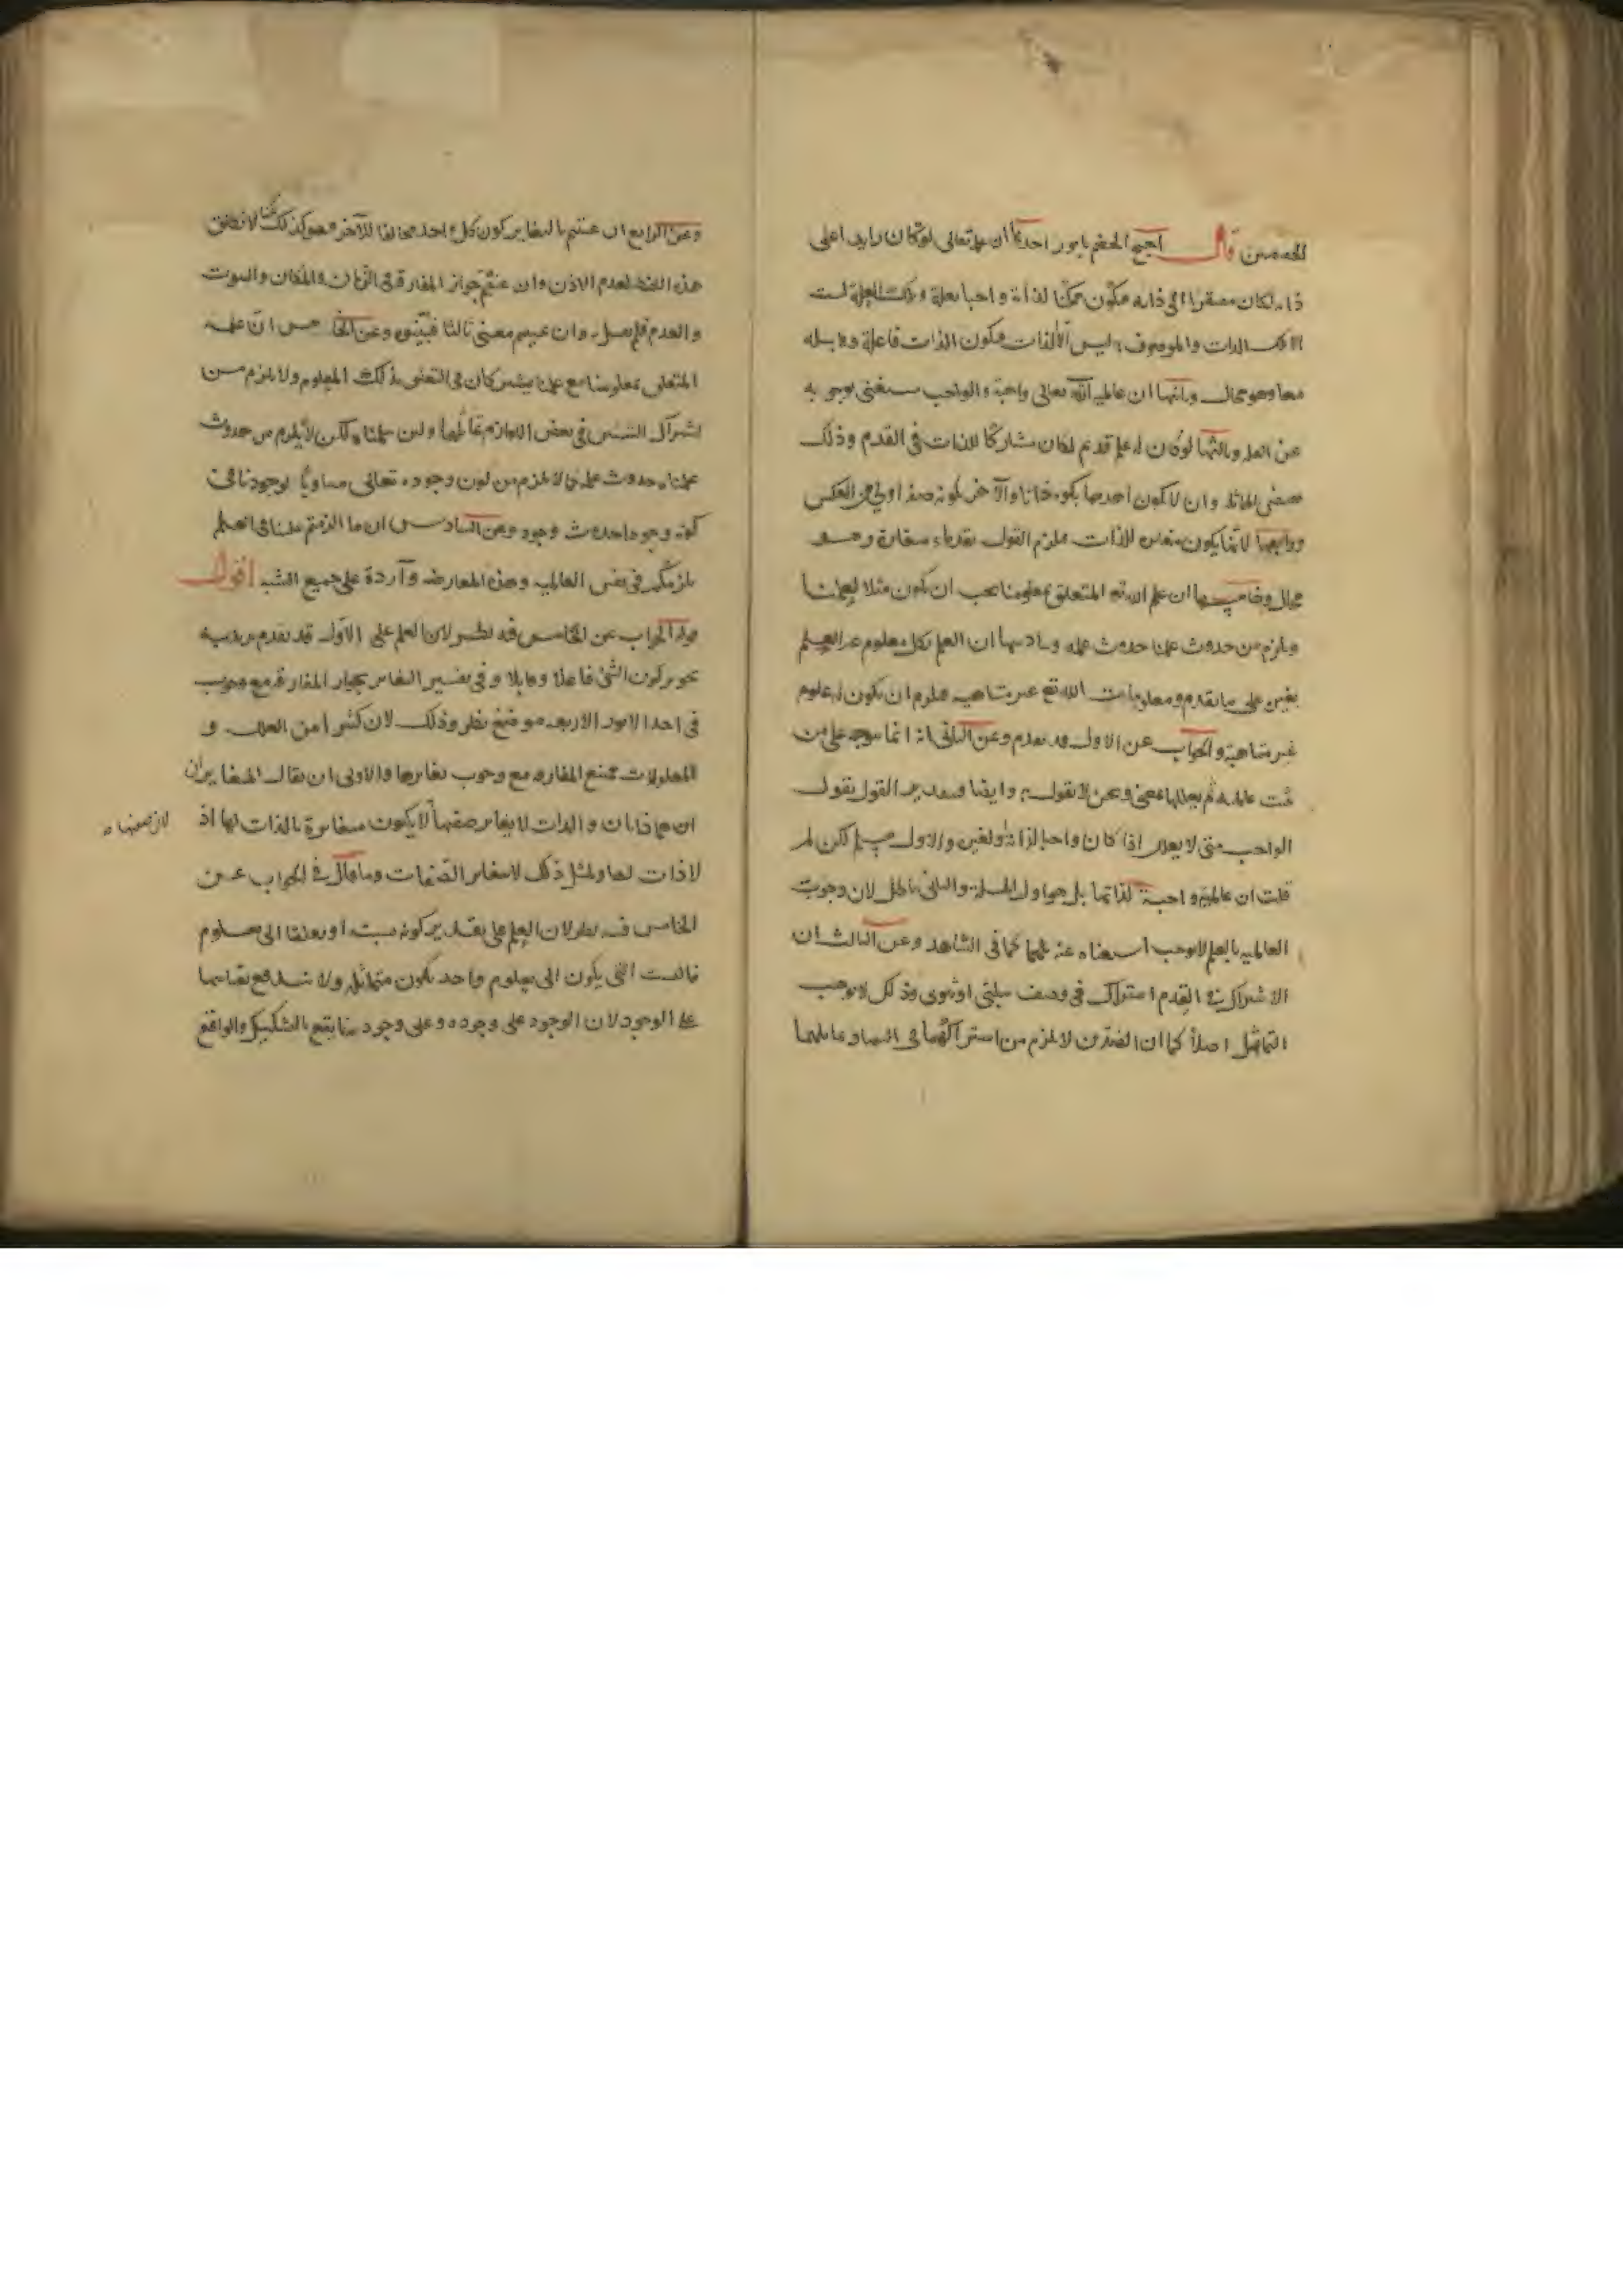 قال احتج الخصم بامور احدها ان علمه تعالى لو كان زايدا على
ذاته لكان مفتقرا الى ذاته فيكون ممكنا لذاته واجبا بعلة وتلك العلة ليست
الا تلك الذات والموصوف به ليس الا الذات فيكون الذات فاعلة وقابلة
معا وهو محال وثانيها ان عالمية الله تعالى واجبة والواجب يستغنى بوجوبه
عن العلة وثالثها لو كان له علم قديم لكان مشاركا للذات في القدم وذلك
يقتضي المماثلة وان لا يكون احدهما بكونه ذاتا والآخر بكونه صفة اولى من العكس
ورابعها انها يكون مغايرة للذات فيلزم القول بقدماء متغايرة وهو
محال وخامسها ان علم الله تع المتعلق بمعلومنا يجب ان يكون مثلا لعلمنا
ويلزم من حدوث علمنا حدوث علمه وسادسها ان العلم بكل معلوم غير العلم
بغيره على ما تقدم ومعلومات الله تع غير متناهية فيلزم ان يكون له علوم
غير متناهية والجواب عن الاول قد تقدم وعن الثاني انه انما يتوجه على من
يثبت عالمية ثم يعللها بمعنى ونحن لا نقول به وايضا وبتقدير القول نقول
الواجب متى لا يعلل اذا كان واجبا لذاته او لغيره والاول مسلم لكن لم
قلت ان عالميته واجبة لذاتها بل هو اول المسئلة والثاني باطل لان وجوب
العالمية بالعلم لا يوجب استغناه عنه كما في الشاهد وعن الثالث ان
الاشتراك في القدم اشتراك في وصف سلبي او ثبوتي وذلك لا يوجب
التماثل اصلا كما ان الضدين لا يلزم من اشتراكهما في
وعن الرابع ان عنيتم بالتغاير كون كل واحد مخالفا للآخر فهو كذلك لكنا لا نطلق
هذه اللفظة لعدم الاذن وان عنيتم جواز المفارقة في الزمان والمكان والثبوت
والعدم فلم يحصل وان عنيتم معنى ثالثا فبينوه وعن الخامس ان علمه
المتعلق بمعلومنا مع علمنا يشتركان في التعلق بذلك المعلوم ولا يلزم من
اشتراك الشيئين في بعض اللوازم تماثلهما ولئن سلمنا ولكن لا يلزم من حدوث
علمنا حدوث علمه كما لا يلزم من كون وجوده تعالى مساويا لوجودنا في
كونه وجودا حدوث وجوده وعن السادس ان ما الزمتم علينا في العلم
يلزمكم في نفس العالمية وهذه المعارضة واردة على جميع الشبه اقول
هذه الجواب عن الخامس فيه نظر لان العلم على الاول قد تقدم
تجويز كون الشئ فاعلا وقابلا وفي تفسير التغاير بجواز المفارقة مع
في احد الامور الاربعة موضع نظر وذلك لان كثيرا من العلل و
المعلولات يمتنع المفارقة مع وجوب تغايرها والاولى ان يقال المتغايران
ان هما ذاتان والذات لا يغاير صفتها لا يكون مغايرة بالذات لها اذ
لان صفتها
لا ذات لها ولمثل ذلك لا يتغاير الصفات وما قال في الجواب عن
الخامس فيه نظر لان العلم على تقدير كونه نسبة او تعلقا الى معلوم
فالنسب التي يكون الى معلوم واحد يكون متماثلة ولا يندفع بقياسها
على الوجود لان الوجود على وجوده وعلى وجودنا يقع بالتشكيك والواقع